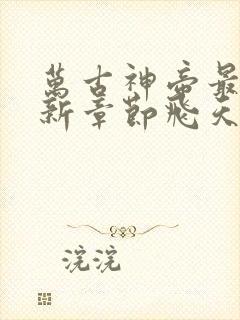 萬古神帝最
新章節飛天
浣浣